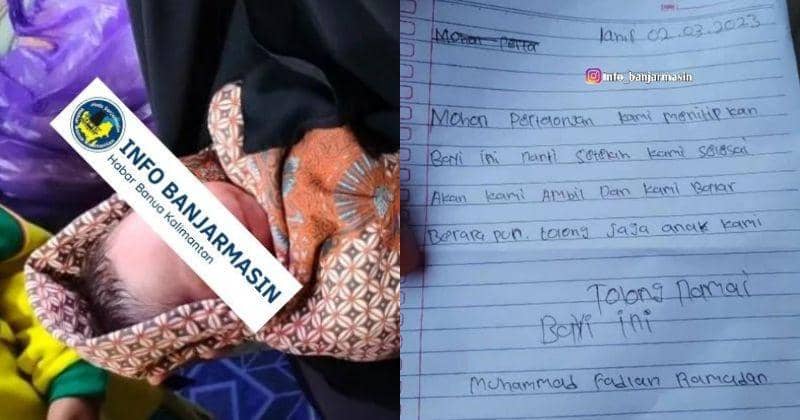 INFO BANJARMASIN
Habar Banua Kalimantan
Mohon
lahir 02.03.2023
info_banjarmasin
Mohon Pertolongan kami menitipkan
Bayi ini nanti setelah kami selesai
Akan kami AMbil Dan kami Bayar
Berapa pun. tolong jaga anak kami
Tolong namai
Bayi ini
Muhammad Fadlan Ramadan